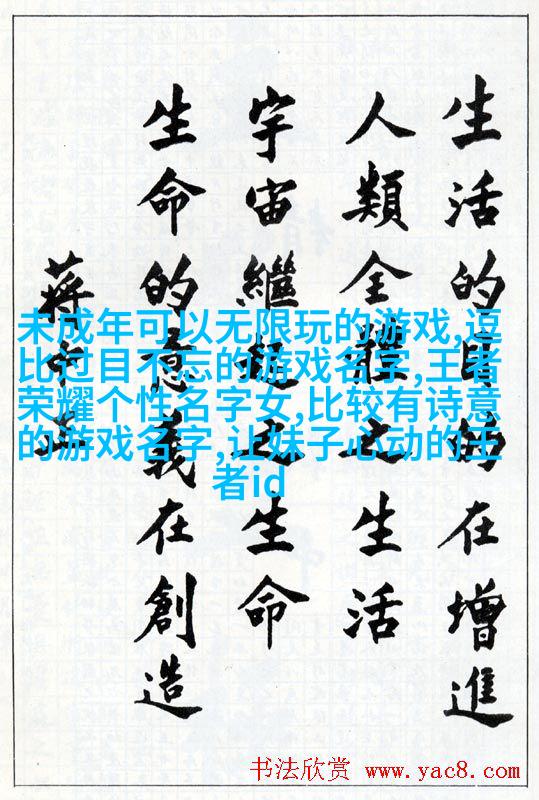 生活的目的在增進
人類全體之生活
宇宙繼起之生命
生命的意義在創造
蔣中正
未成年可以无限玩的游戏,逗
比过目不忘的游戏名字,王者
荣耀个性名字女,比较有诗意
的游戏名字,让妹子心动的王
者id
书法欣赏 www.yac8.com